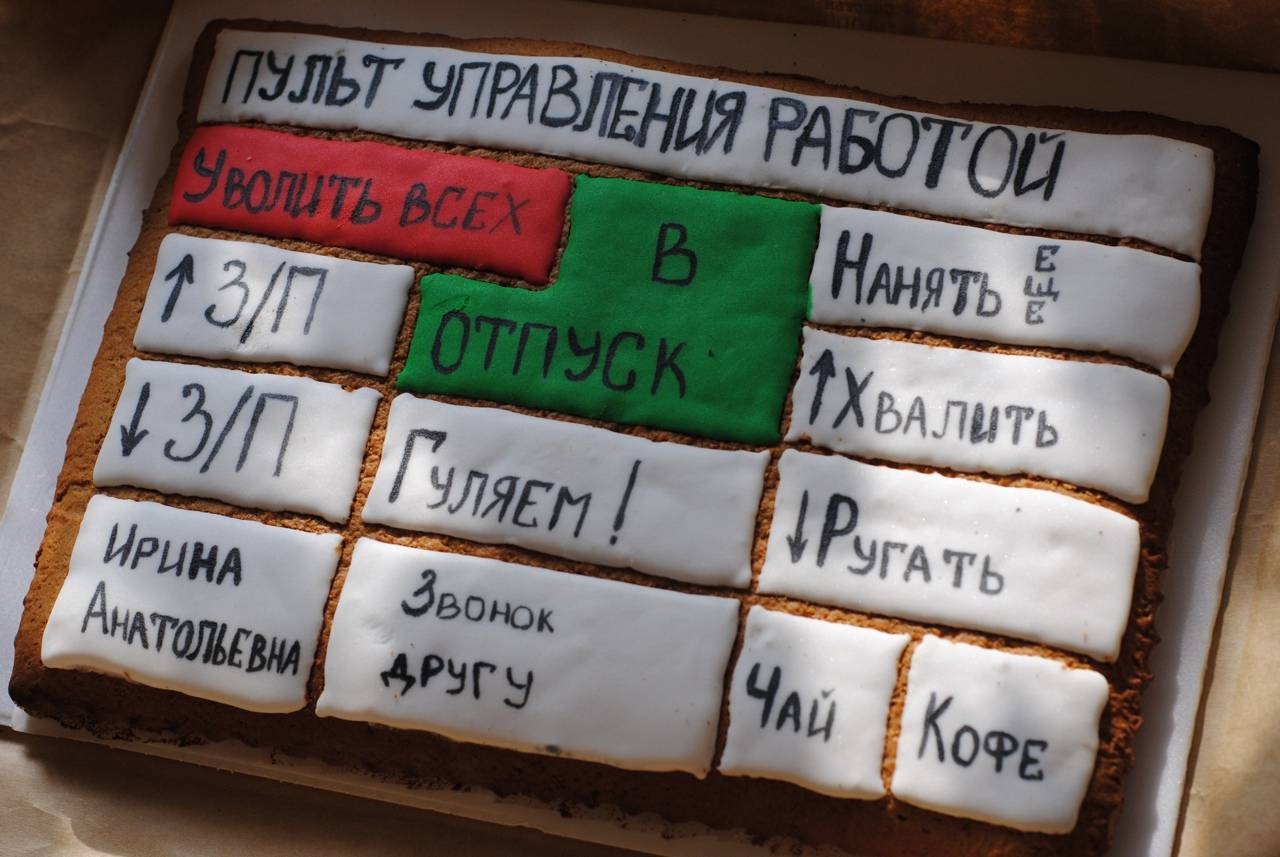 ПУЛЬТ УПРАВЛЕНИЯ РАБОТОЙ
УВОЛИТЬ ВСЕХ
В
ОТПУСК
НАНЯТЬ ЕЩЕ
↑ З/П
↑ ХВАЛИТЬ
↓ З/П
ГУЛЯЕМ!
↓ РУГАТЬ
ИРИНА
АНАТОЛЬЕВНА
ЗВОНОК
ДРУГУ
ЧАЙ
КОФЕ